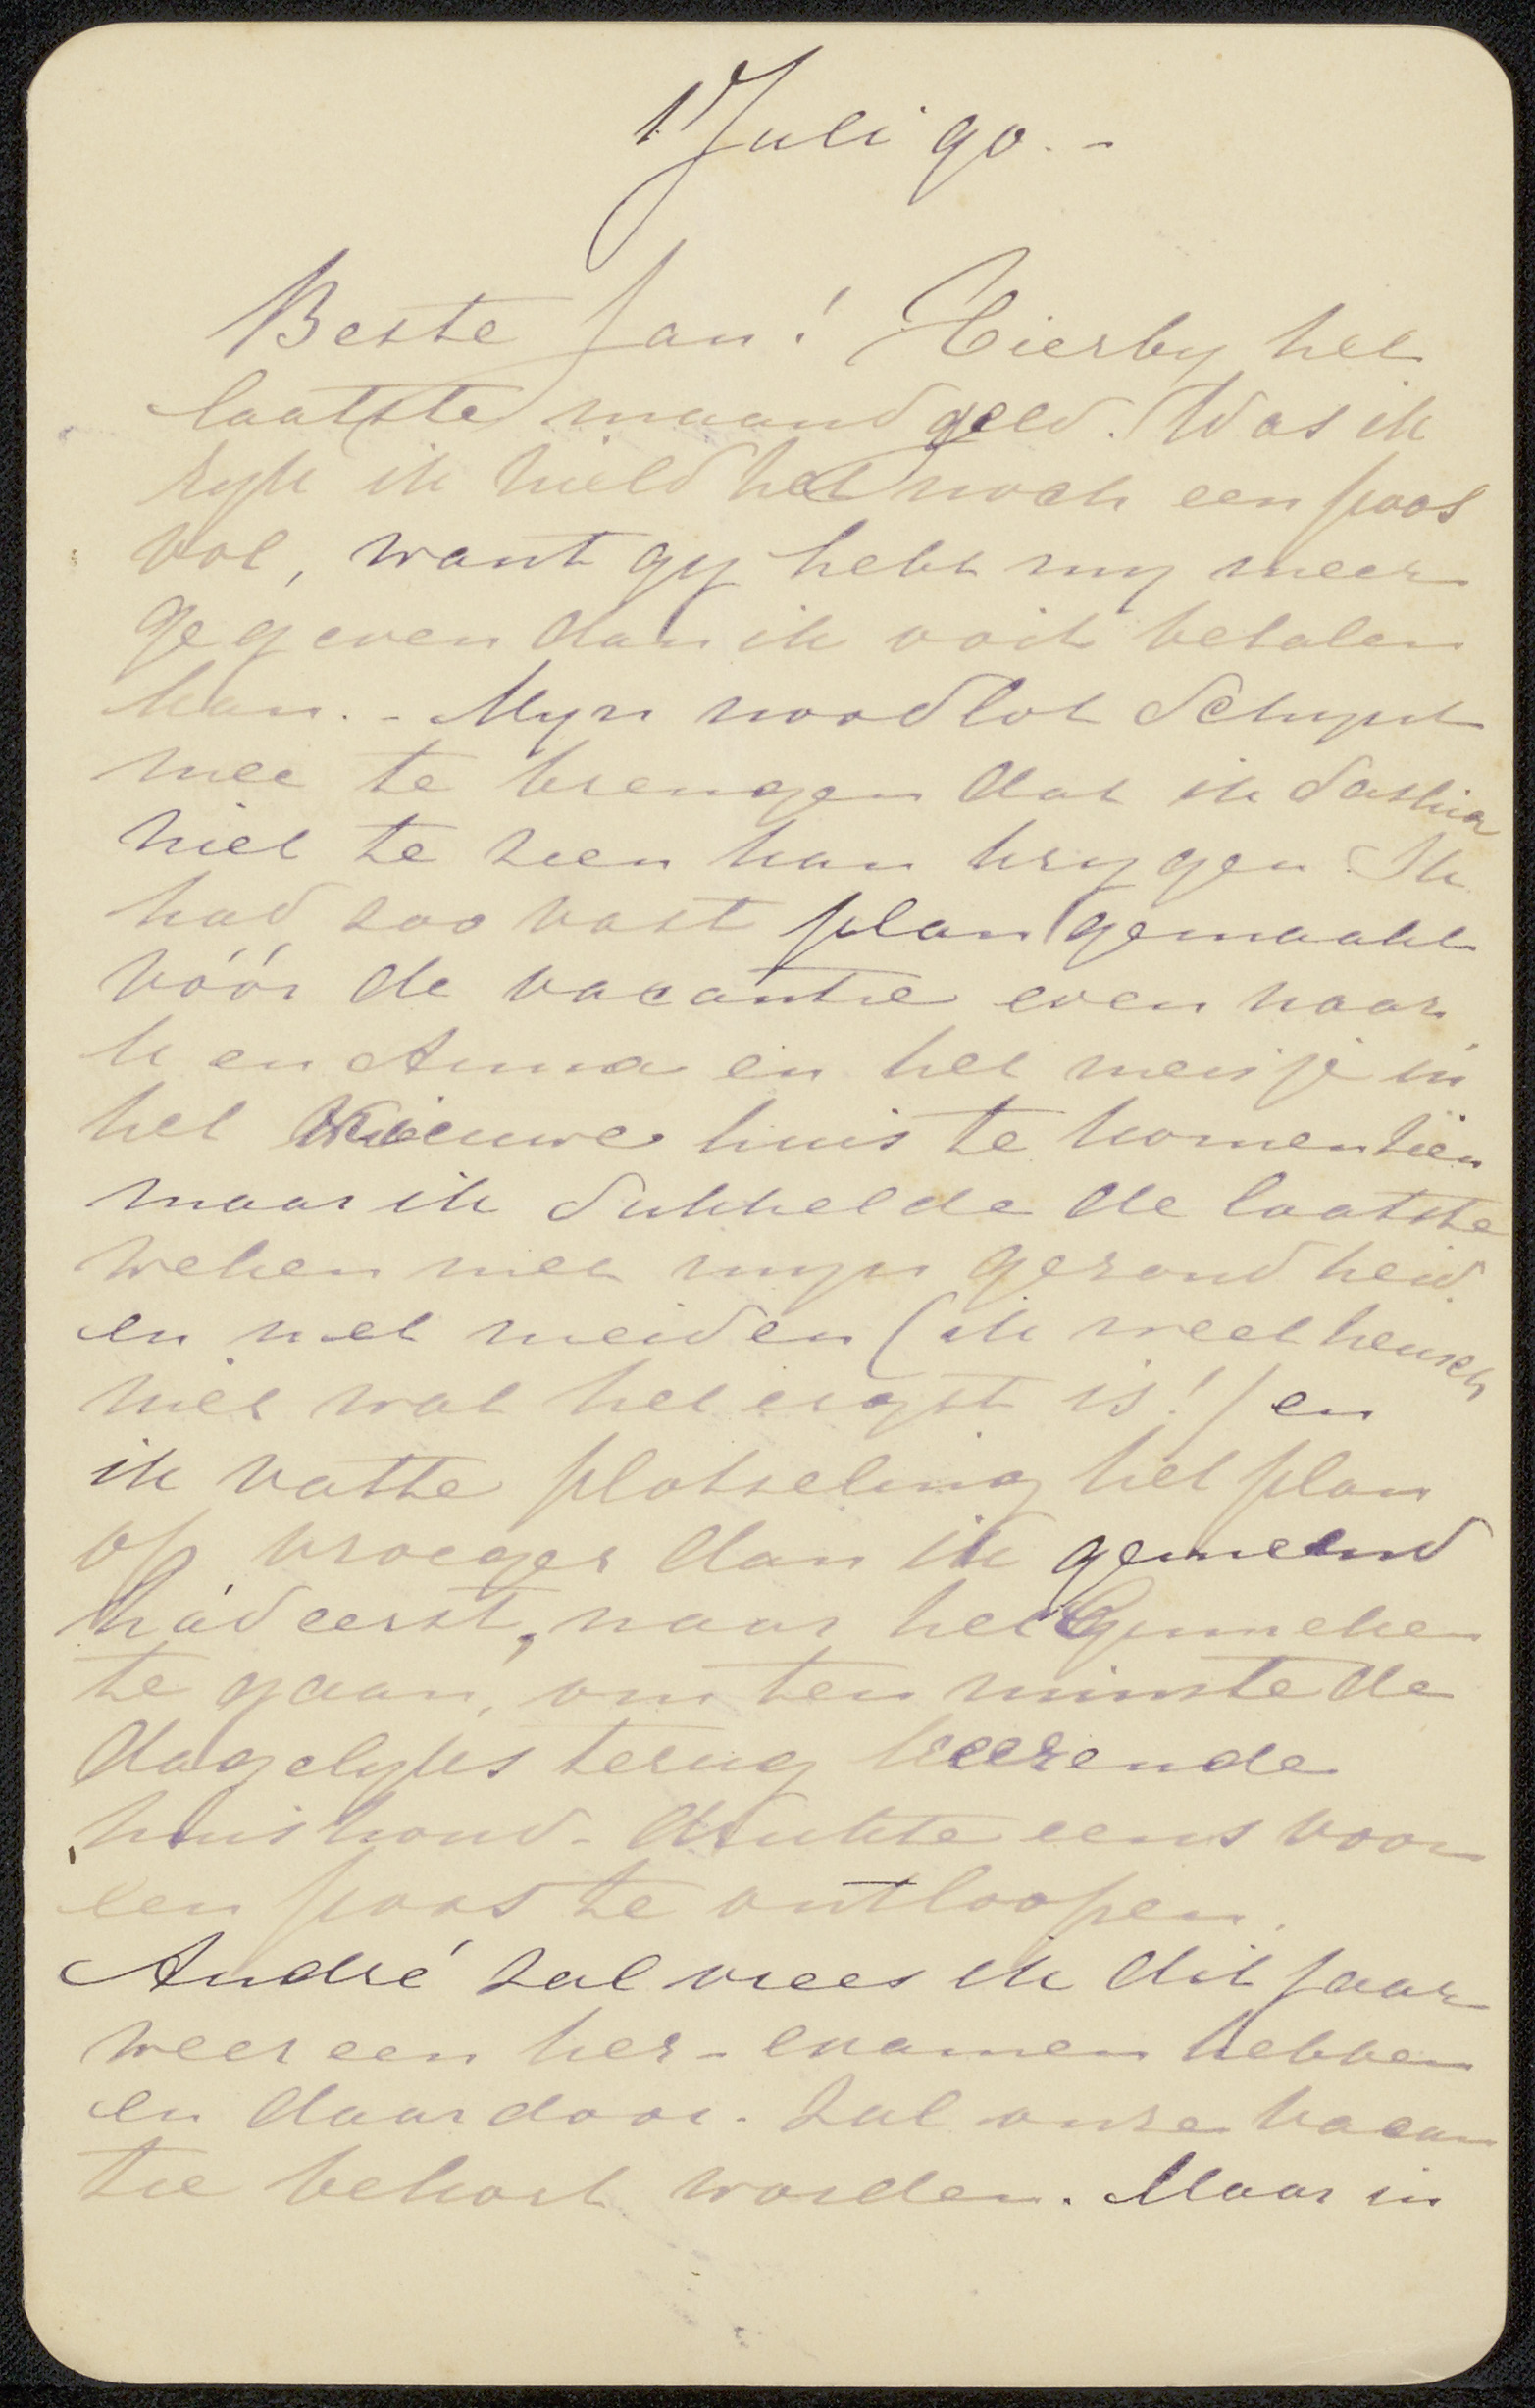 1 Juli 90. -
Beste Jan! Hierby het
laatste maandgeld. Was ik
ryk ik hield het noch een poos
vol, want gy hebt my meer
gegeven dan ik ooit betalen
kan. - Myn noodlot schynt
mee te brengen dat ik Saskia
niet te zien kan krygen. Ik
had zoo vast plan gemaakt
vóór de vacantie even naar
U en Anna en het meisje in
het nieuwe huis te komen zien
maar ik sukkelde de laatste
weken met myn gezondheid.
en met meiden (ik weet heusch
niet wat het ergst is!) en
ik vatte plotseling het plan
op vroeger dan ik gemeend
hád eerst, naar het Ginneken
te gaan, om ten minste de
dagelyks terug keerende
huishoud-drukte eens voor
een poos te ontloopen.
André zal vrees ik dit jaar
weer een her-examen hebben
en daardoor zal onze vacan
tie bekort worden. Maar in